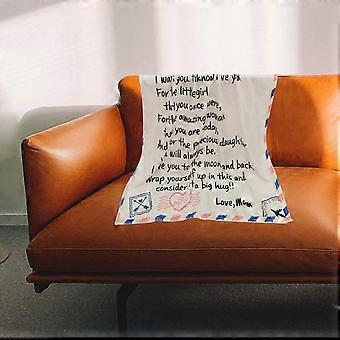 I want you to know I love you
For the little girl
that you once were,
For the amazing woman
that you are today,
And for the precious daughter
you will always be.
I love you to the moon and back
Wrap yourself up in this and
consider it a big hug!!
Love, Mom